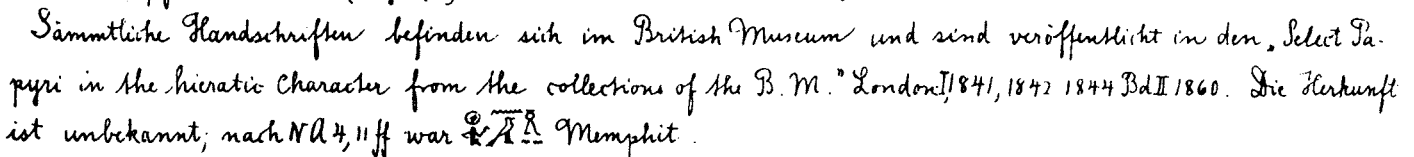 Sämmtliche Handschriften befinden sich im British Museum und sind veröffentlicht in den „Select Pa-
pyri in the hieratic Character from the collections of the B. M." London I, 1841, 1842 1844 Bd II 1860. Die Herkunft
ist unbekannt; nach NA 4, 11 ff war Memphit.